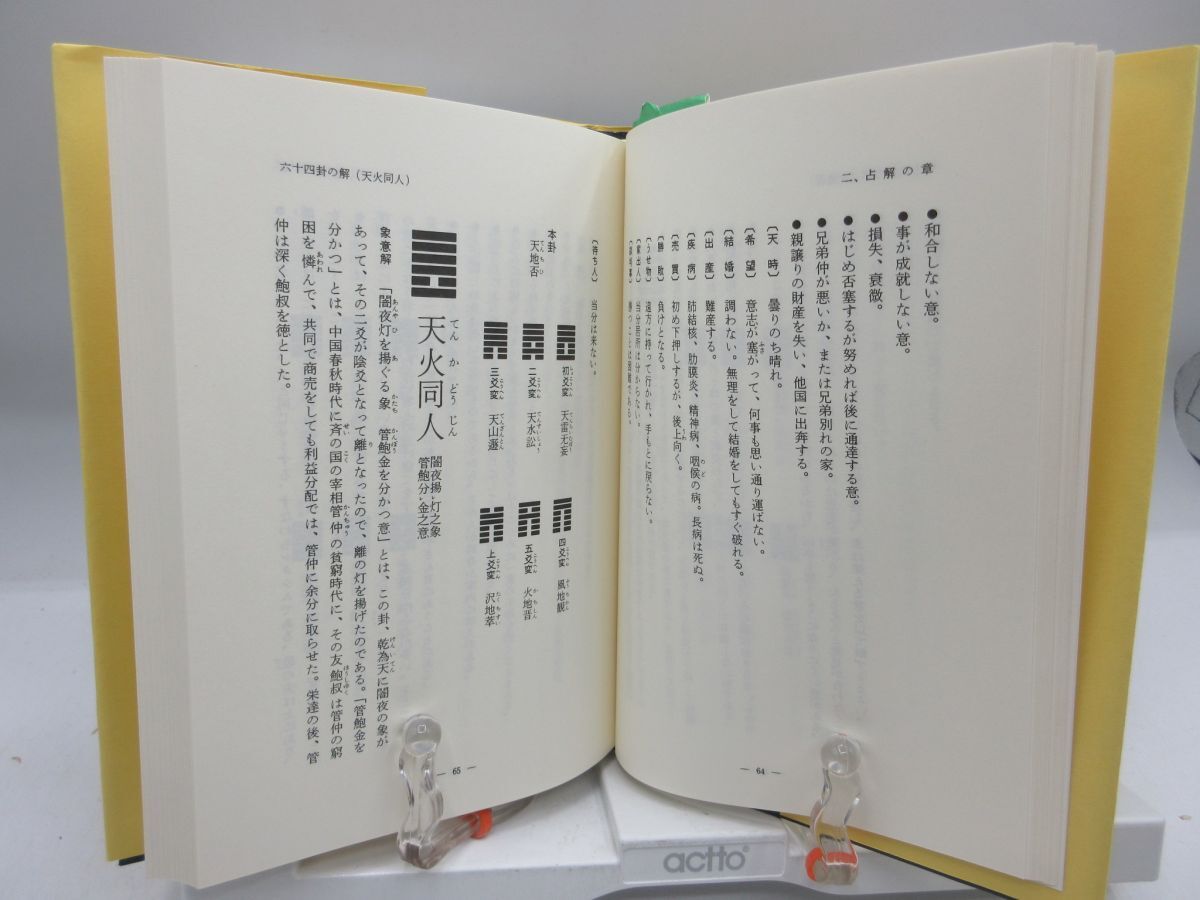 二、占解の章
●和合しない意。
●事が成就しない意。
●損失、衰微。
●はじめ否塞するが努めれば後に通達する意。
●兄弟仲が悪いか、または兄弟別れの家。
●親譲りの財産を失い、他国に出奔する。
〔天時〕曇りのち晴れ。
〔希望〕意志が塞がって、何事も思い通り運ばない。
〔結婚〕調わない。無理をして結婚をしてもすぐ破れる。
〔出産〕難産する。
〔疾病〕肺結核、肋膜炎、精神病、咽喉の病。長病は死ぬ。
〔売買〕初め下押しするが、後上向く。
〔勝敗〕負けとなる。
〔うせ物〕遠方に持って行かれ、手もとに戻らない。
〔家出人〕当分居所は分からない。
勝つことは困難である。
— 64 —
六十四卦の解（天火同人）
〔待ち人〕当分は来ない。
本卦
天地否
初爻変 天雷无妄
二爻変 天水訟
三爻変 天山遯
四爻変 風地観
五爻変 火地晋
上爻変 沢地萃
天火同人
闇夜揚灯之象
管鮑分金之意
象意解 「闇夜灯を揚ぐる象 管鮑金を分かつ意」とは、この卦、乾為天に闇夜の象が
あって、その二爻が陰爻となって離となったので、離の灯を揚げたのである。「管鮑金を
分かつ」とは、中国春秋時代に斉の国の宰相管仲の貧窮時代に、その友鮑叔は管仲の窮
困を憐んで、共同で商売をしても利益分配では、管仲に余分に取らせた。栄達の後、管
仲は深く鮑叔を徳とした。
— 65 —
actto